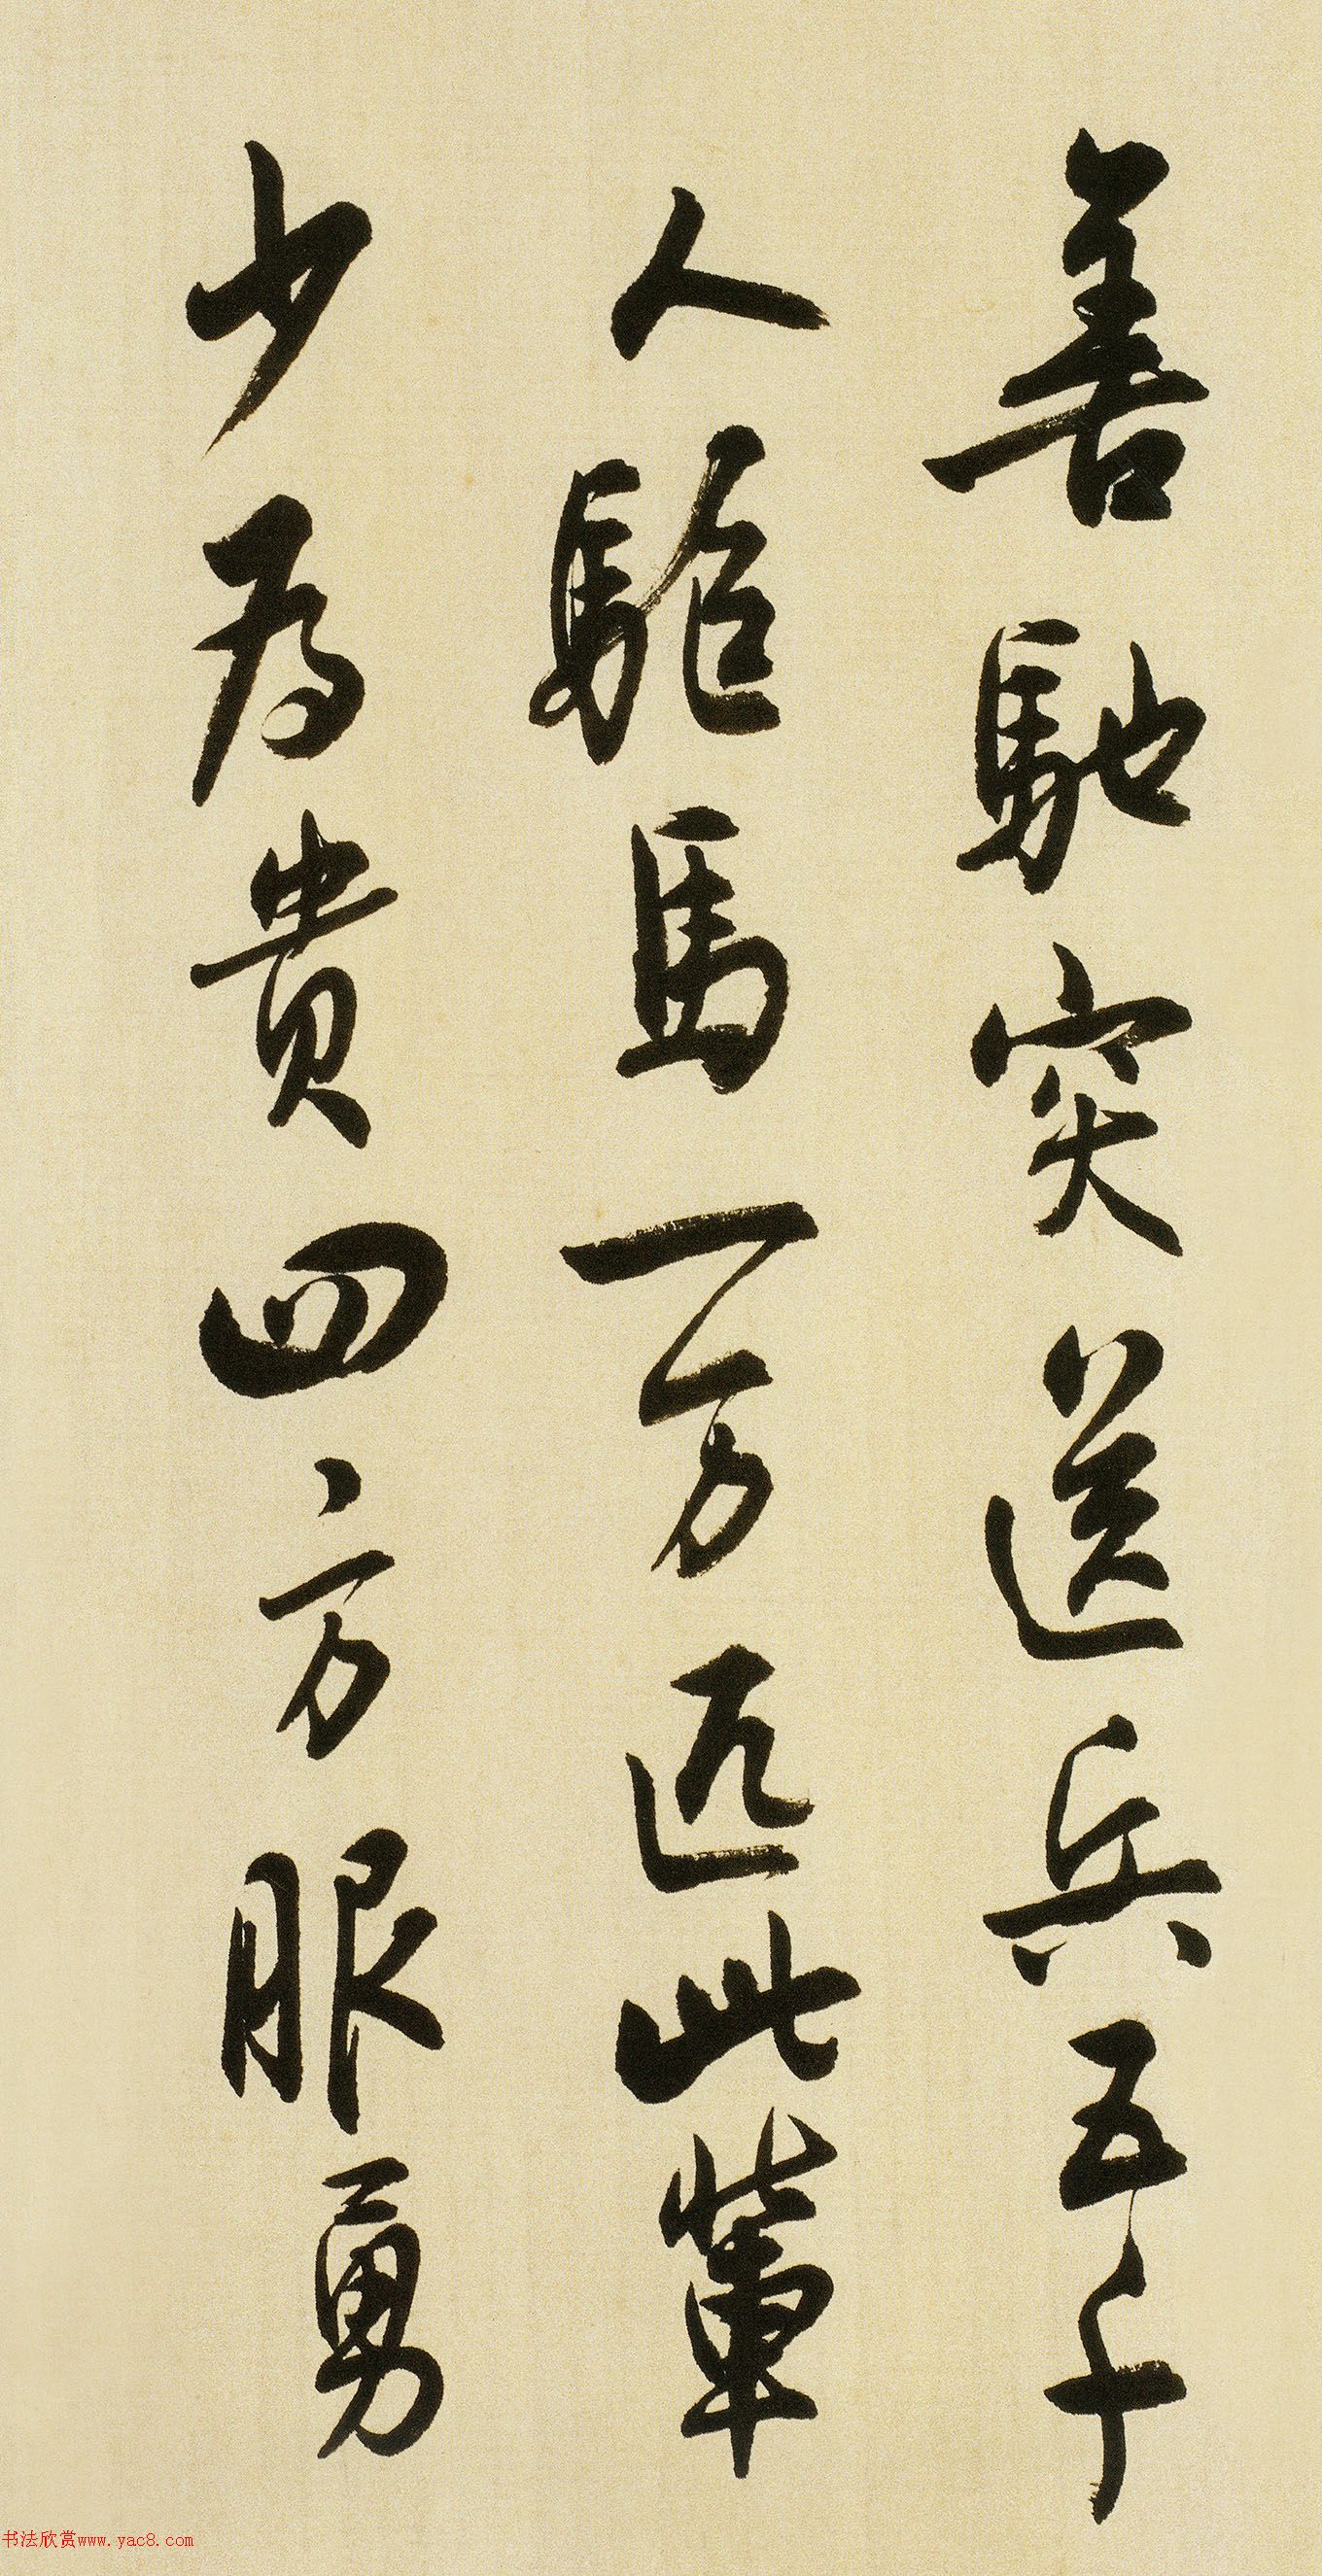 善馳突送兵五千
人駈馬一万匹此輩
少為貴四方服勇
书法欣赏www.yac8.com